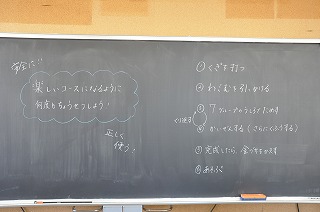 安全に!!
楽しいコースになるように
何度もちょうせつしよう!
正しく
使う。
① くぎを打つ
② わごむを引っかける
③ グループからころがしためす
④ かいぜんする(さらにくふうする)
くり返す
⑤ 完成したら、金づちをかえす
⑥ あそぶ